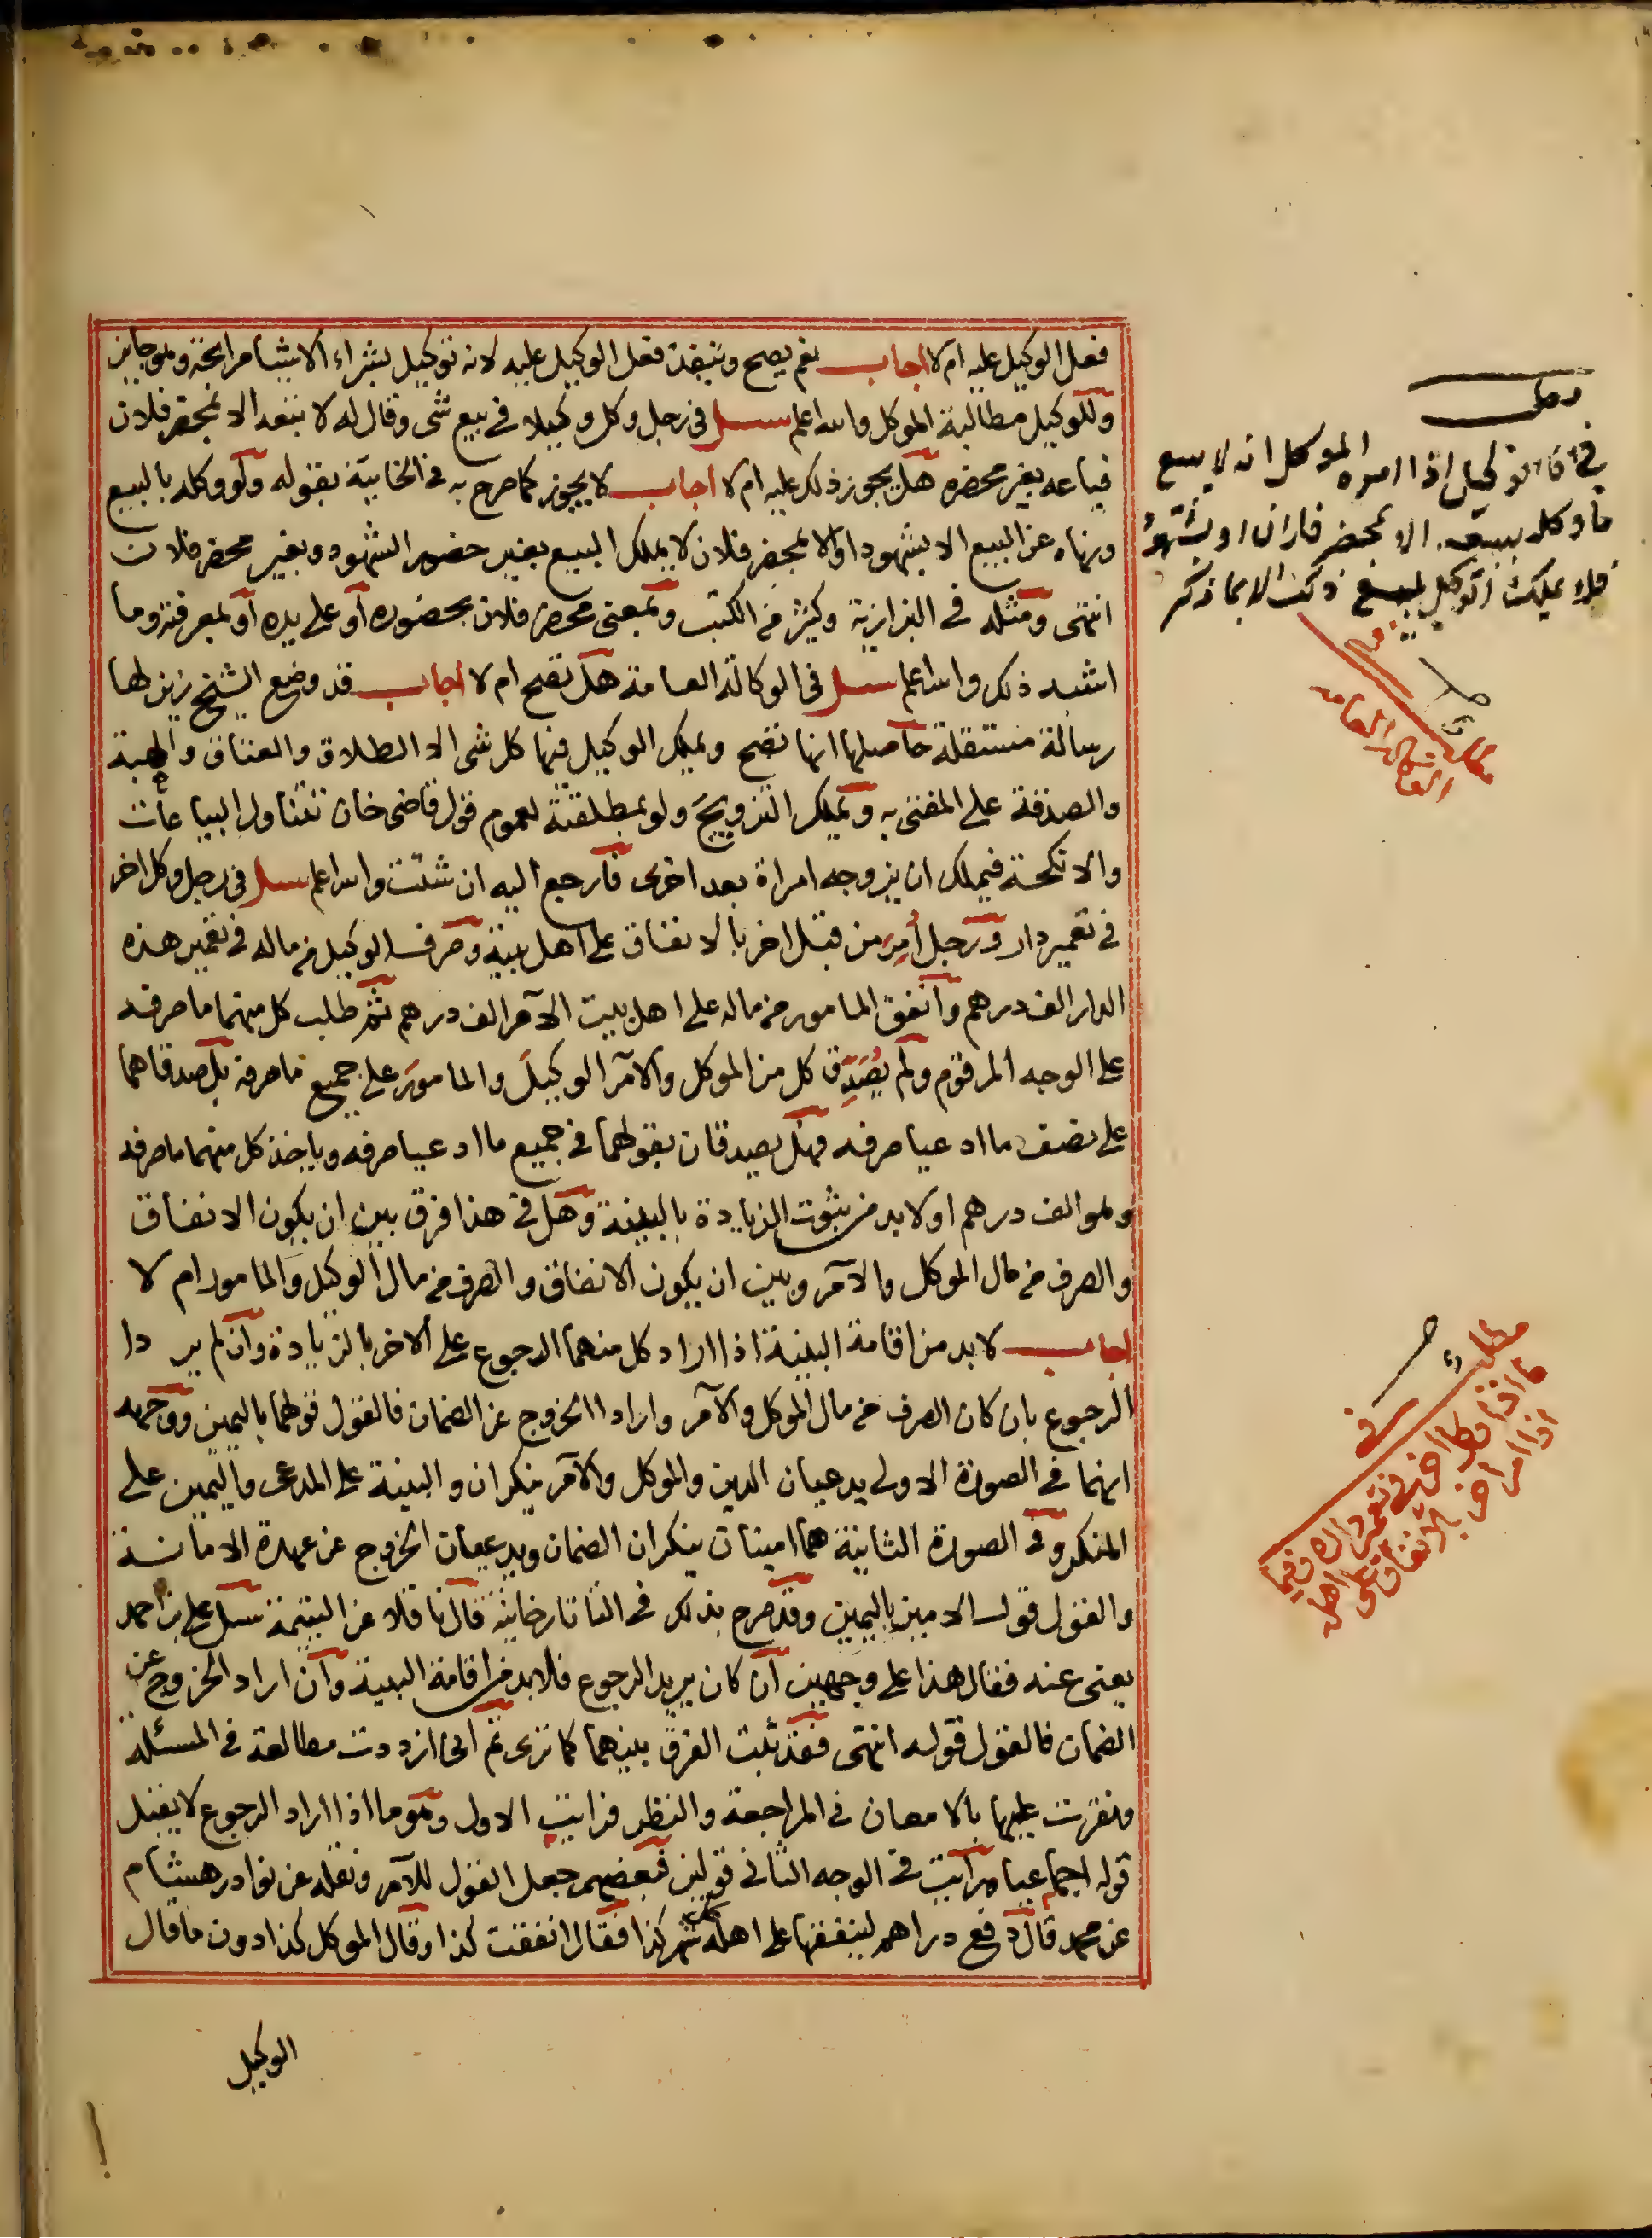 فعل الوكيل عليه ام لا اجاب نعم يصح وينفذ فعل الوكيل عليه لانه توكيل بشراء الاشيا مرابحة وهو جايز
وللوكيل مطالبة الموكل والله اعلم سئل في رجل وكل وكيلا في بيع شى وقال له لا تبعه الا بمحضر فلان
فباعه بغير محضره هل يجوز ذلك عليه ام لا اجاب لا يجوز كما صرح به في الخانية بقوله ولو وكله بالبيع
ونهاه عن البيع الا بشهود او الا بمحضر فلان لا يملك البيع بغير حضور الشهود وبغير محضر فلان
انتهى ومثله في البزازية وكثير من الكتب وبمعنى محضر فلان بحضوره او على يده او بمعرفته وما
اشبه ذلك والله اعلم سئل في الوكالة العامة هل تصح ام لا اجاب قد وضع الشيخ زين لها
رسالة مستقلة حاصلها انها تصح ويملك الوكيل فيها كل شى الا الطلاق والعتاق والهبة
والصدقة على المفتى به ويملك التزويج ولو بمطلقته لعموم قول قاضى خان تتناول البياعات
والانكحة فيملك ان يزوجه امراة بعد اخرى فارجع اليه ان شئت والله اعلم سئل في رجل وكل اخر
في تعمير دار ورجل أُمِرَ من قبل اخر بالانفاق على اهل بيته وصرف الوكيل من ماله في تعمير هذه
الدار الف درهم وانفق المامور من ماله على اهل بيت الآمر الف درهم ثم طلب كل منهما ما صرفه
على الوجه المرقوم ولم يُصَدِّق كل من الموكل والآمر الوكيلَ والمامورَ على جميع ما صرفه بل صدقاهما
على نصف ما ادعيا صرفه فهل يصدقان بقولهما في جميع ما ادعيا صرفه وياخذ كل منهما ما صرفه
وهو الف درهم او لا بد من ثبوت الزيادة بالبينة وهل في هذا فرق بين ان يكون الانفاق
والصرف من مال الموكل والآمر وبين ان يكون الانفاق والصرف من مال الوكيل والمامور ام لا
اجاب لا بد من اقامة البينة اذا اراد كل منهما الرجوع على الاخر بالزيادة وان لم يردا
الرجوع بان كان الصرف من مال الموكل والآمر وارادا الخروج عن الضمان فالقول قولهما باليمين ووجهه
انهما في الصورة الاولى يدعيان الدين والموكل والآمر ينكران والبينة على المدعى واليمين على
المنكر وفي الصورة الثانية هما امينان ينكران الضمان ويدعيان الخروج عن عهدة الامانة
والقول قول الامين باليمين وقد صرح بذلك في التاتارخانية قال ناقلا عن اليتيمة سئل على بن احمد
يعنى عنه فقال هذا على وجهين ان كان يريد الرجوع فلا بد من اقامة البينة وان اراد الخروج عن
الضمان فالقول قوله انتهى فقد ثبت الفرق بينهما كما ترى ثم انى ازددت مطالعة في المسئلة
ونقرت عليها بالامعان في المراجعة والنظر فرايت الاول وهو ما اذا اراد الرجوع لا يقبل
قوله اجماعيا ورايت في الوجه الثانى قولين فبعضهم جعل القول للآمر ونقله عن نوادر هشام
عن محمد قال دفع دراهم لينفقها على اهله شهر كذا فقال انفقت كذا وقال الموكل كذا دون ما قال
الوكيل
مطلب
اذا امره الموكل انه لا يبيع
ما وكله ببيعه الا بمحضر فلان او بشهود
فلا يملك الوكيل ذلك الا بما ذكر
مطلب في
الوكالة العامة
مطلب في
ما اذا وكل اخر في تعمير داره وفيما
اذا امر اخر بالانفاق على اهله